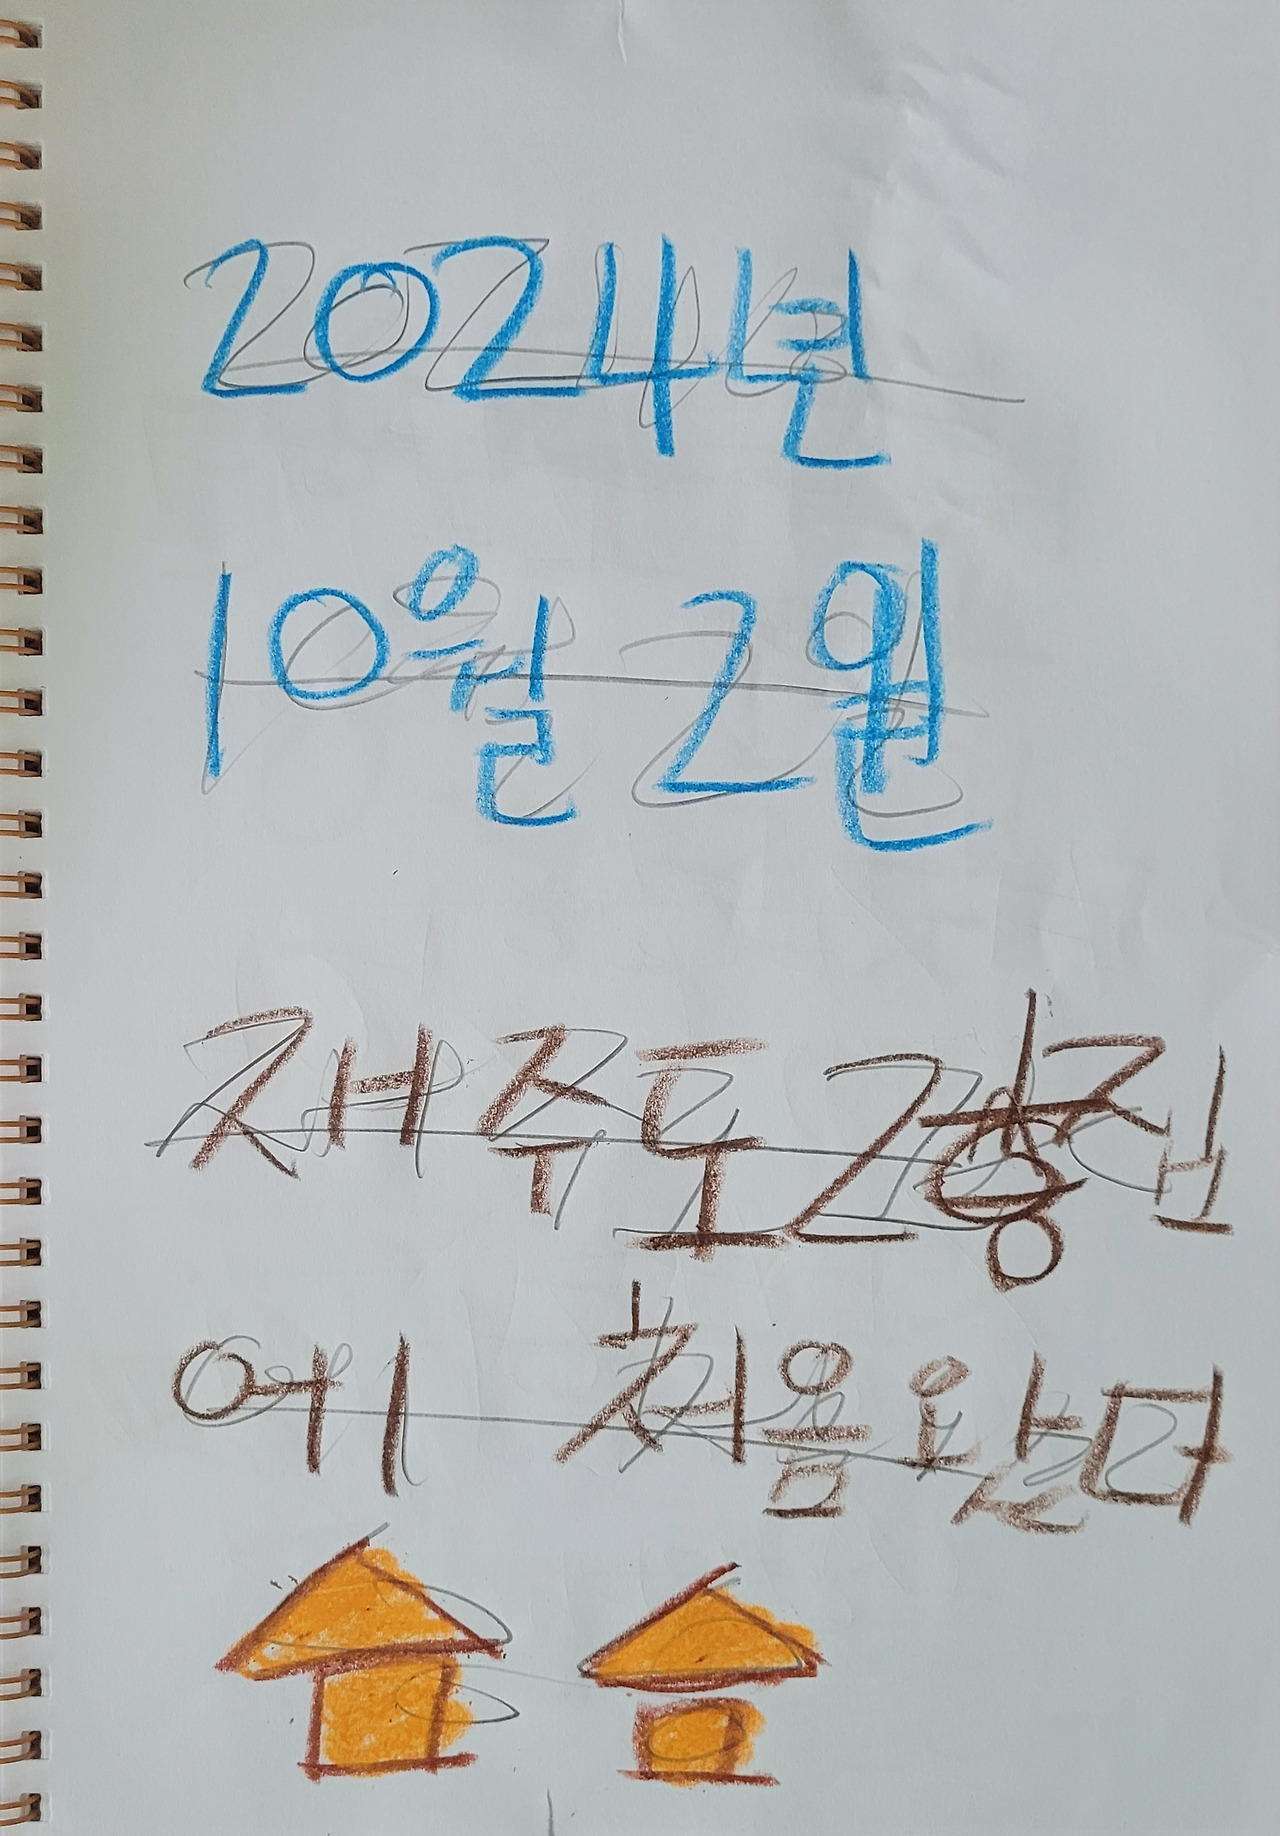 2024년
10월 2일
재주도 2층집
에 처음 왔다